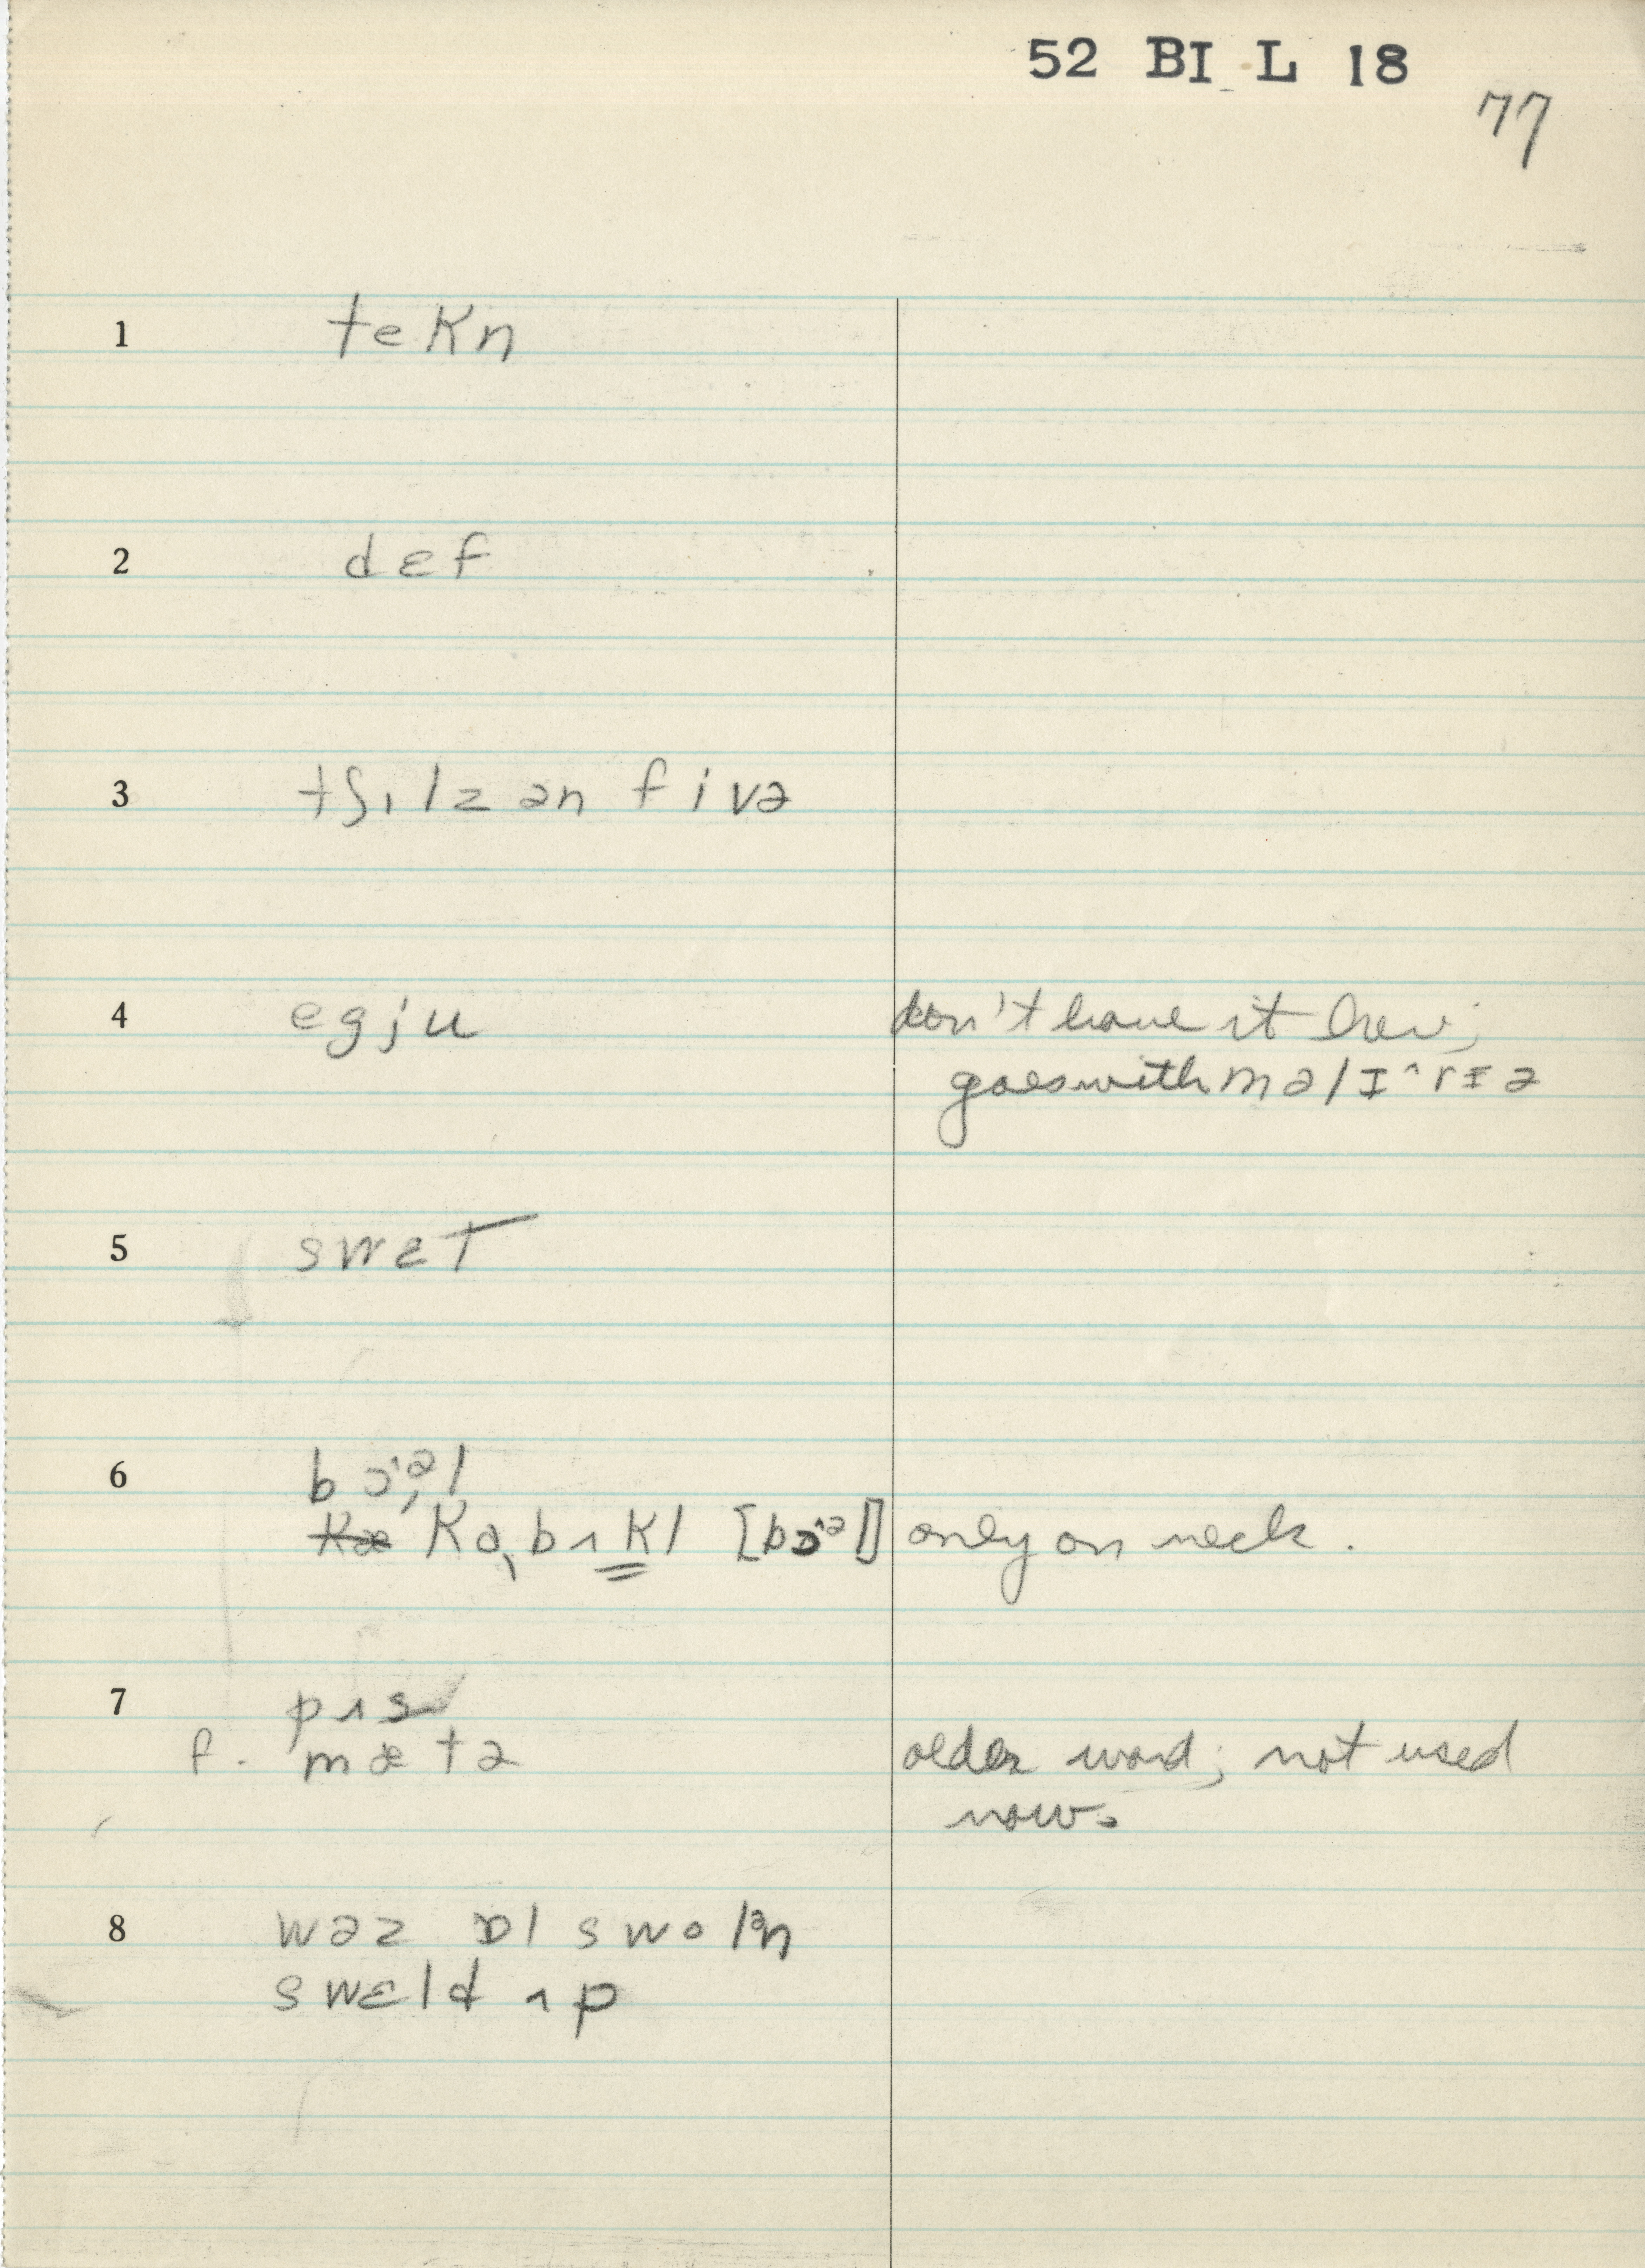 52 BI L 18
77
1 teKn
2 dɛf
3 tʃɪlz ən fivə
4 egju don't have it here;
goes with məlɪ^rɪə
5 swɛT
6 bɔ'əl
KɑbʌKl [bɔ'əl] only on neck.
7 pʌs
f. mætə older word; not used
now.
8 wəz ɒl swolən
swɛld ʌp